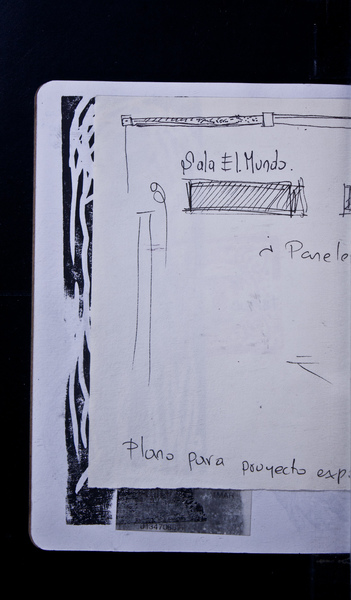 Sala El Mundo.
Panele
Plano para proyecto exp.